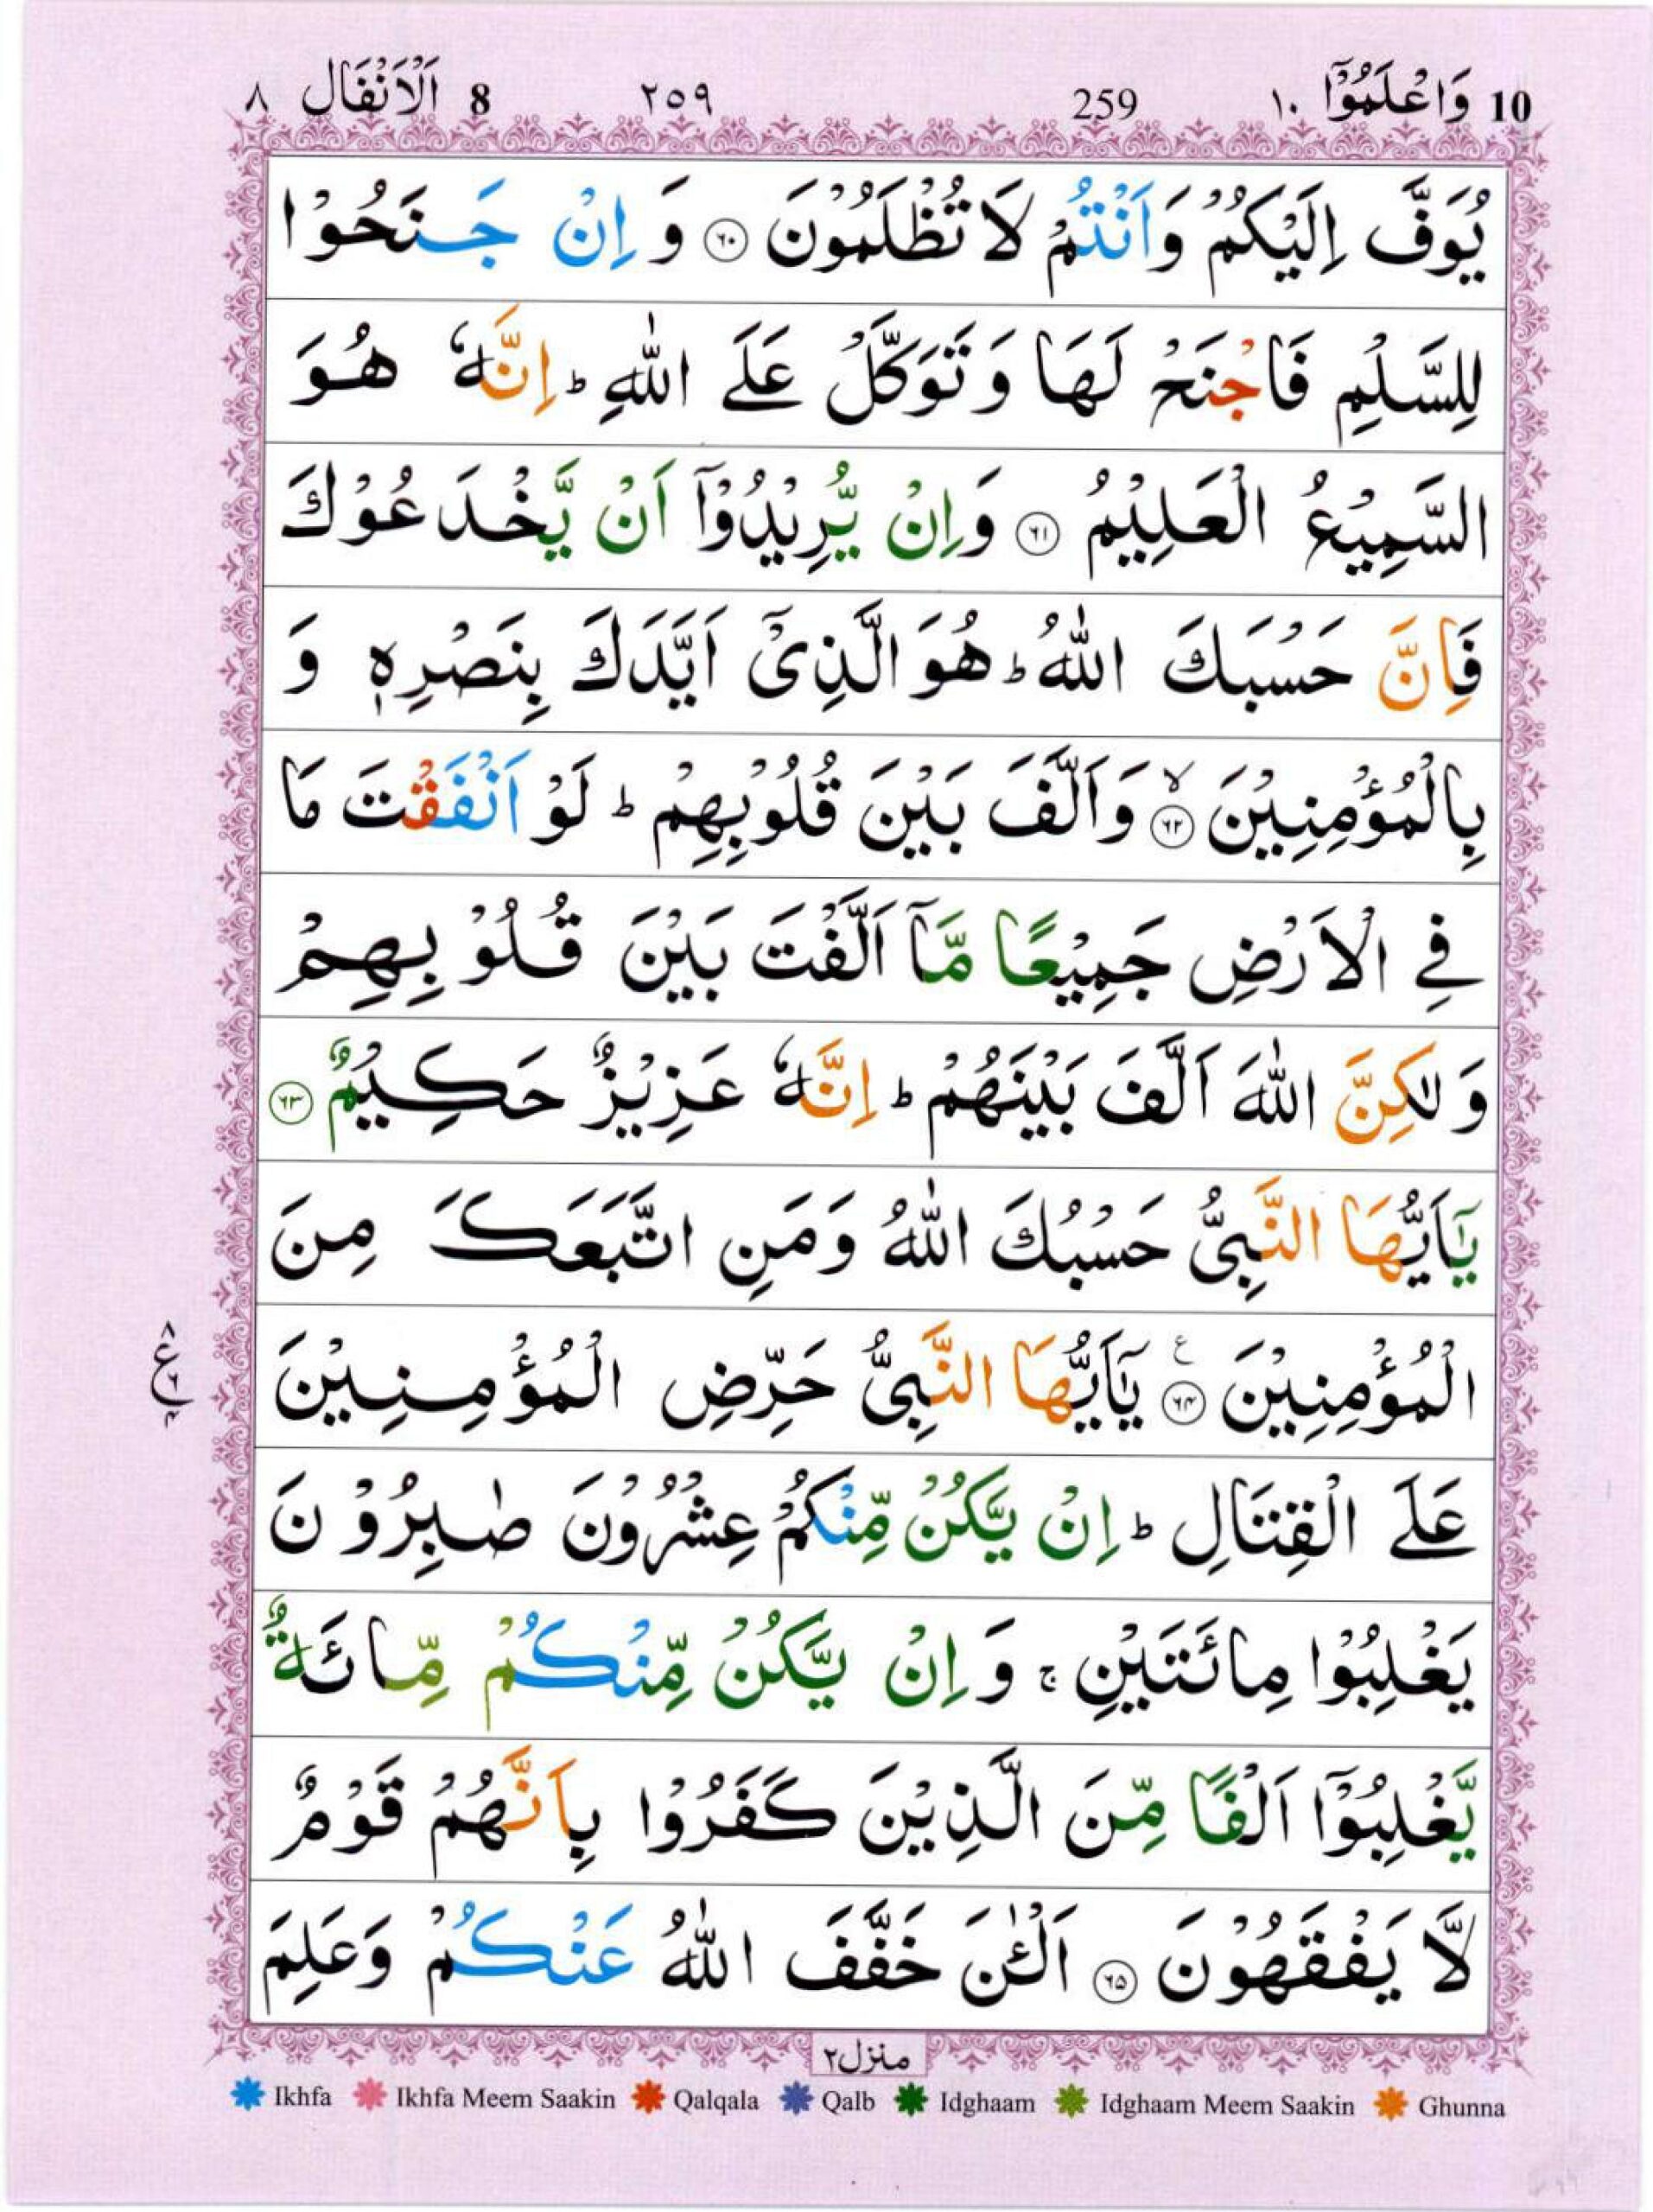 10 وَاعْلَمُوْٓا ١٠ 259 ٢٥٩ 8 اَلْاَنْفَال ٨
يُوَفَّ اِلَيْكُمْ وَاَنْتُمْ لَا تُظْلَمُوْنَ ﴿٦٠﴾ وَ اِنْ جَنَحُوْا
لِلسَّلْمِ فَاجْنَحْ لَهَا وَ تَوَكَّلْ عَلَے اللّٰهِ ؕ اِنَّهٗ هُوَ
السَّمِيْعُ الْعَلِيْمُ ﴿٦١﴾ وَاِنْ يُّرِيْدُوْٓا اَنْ يَّخْدَعُوْكَ
فَاِنَّ حَسْبَكَ اللّٰهُ ؕ هُوَ الَّذِىْٓ اَيَّدَكَ بِنَصْرِهٖ وَ
بِالْمُؤْمِنِيْنَ ۙ﴿٦٢﴾ وَاَلَّفَ بَيْنَ قُلُوْبِهِمْ ؕ لَوْ اَنْفَقْتَ مَا
فِے الْاَرْضِ جَمِيْعًا مَّآ اَلَّفْتَ بَيْنَ قُلُوْبِهِمْ
وَ لٰكِنَّ اللّٰهَ اَلَّفَ بَيْنَهُمْ ؕ اِنَّهٗ عَزِيْزٌ حَكِيْمٌ ﴿٦٣﴾
يٰٓاَيُّهَا النَّبِىُّ حَسْبُكَ اللّٰهُ وَمَنِ اتَّبَعَكَ مِنَ
الْمُؤْمِنِيْنَ ﴿٦٤﴾ ع يٰٓاَيُّهَا النَّبِىُّ حَرِّضِ الْمُؤْمِنِيْنَ
٨ ع ٦ ٤
عَلَے الْقِتَالِ ؕ اِنْ يَّكُنْ مِّنْكُمْ عِشْرُوْنَ صٰبِرُوْنَ
يَغْلِبُوْا مِائَتَيْنِ ۚ وَ اِنْ يَّكُنْ مِّنْكُمْ مِّائَةٌ
يَّغْلِبُوْٓا اَلْفًا مِّنَ الَّذِيْنَ كَفَرُوْا بِاَنَّهُمْ قَوْمٌ
لَّا يَفْقَهُوْنَ ﴿٦٥﴾ اَلْـٰٔنَ خَفَّفَ اللّٰهُ عَنْكُمْ وَعَلِمَ
منزل٢
Ikhfa Ikhfa Meem Saakin Qalqala Qalb Idghaam Idghaam Meem Saakin Ghunna